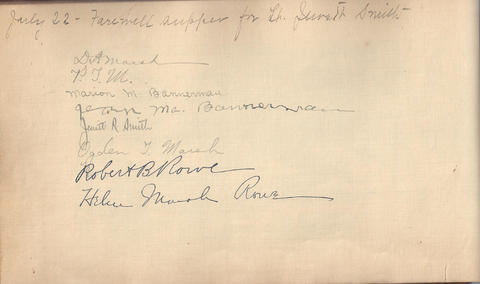 July 22 - Farewell supper for Lt. Jewett Smith
D.A. Marsh
P. T. M.
Marion M. Bannerman
Mc. Bannerman
Jewett R Smith
Ogden T. Marsh
Robert B Rowe
Helen Marsh Rowe